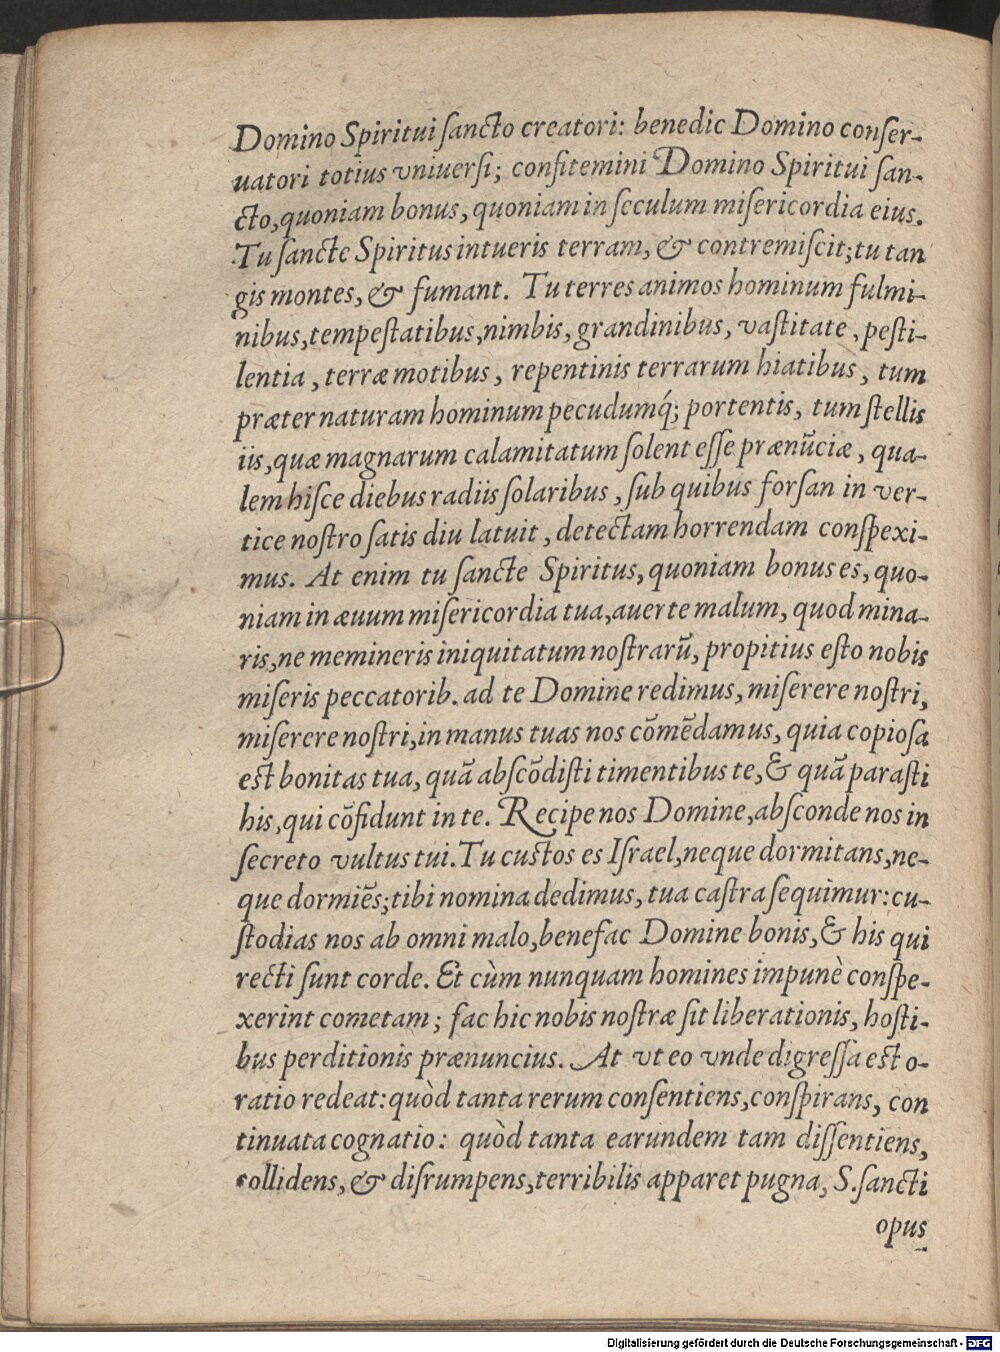 Domino Spiritui ſancto creatori: benedic Domino conſer-
uatori totius vniuerſi; confitemini Domino Spiritui ſan-
cto, quoniam bonus, quoniam in ſeculum miſericordia eius.
Tu ſancte Spiritus intueris terram, & contremiſcit; tu tan
gis montes, & fumant. Tu terres animos hominum fulmi-
nibus, tempeſtatibus, nimbis, grandinibus, vaſtitate, peſti-
lentia, terræ motibus, repentinis terrarum hiatibus, tum
præter naturam hominum pecudumq́; portentis, tum ſtellis
iis, quæ magnarum calamitatum ſolent eſſe prænūciæ, qua-
lem hiſce diebus radiis ſolaribus, ſub quibus forſan in ver-
tice noſtro ſatis diu latuit, detectam horrendam conſpexi-
mus. At enim tu ſancte Spiritus, quoniam bonus es, quo-
niam in æuum miſericordia tua, auerte malum, quod mina-
ris, ne memineris iniquitatum noſtrarū, propitius eſto nobis
miſeris peccatorib. ad te Domine redimus, miſerere noſtri,
miſerere noſtri, in manus tuas nos cōmēdamus, quia copioſa
eſt bonitas tua, quā abſcōdiſti timentibus te, & quā paraſti
his, qui cōfidunt in te. Recipe nos Domine, abſconde nos in
ſecreto vultus tui. Tu cuſtos es Iſrael, neque dormitans, ne-
que dormiēs; tibi nomina dedimus, tua caſtra ſequimur: cu-
ſtodias nos ab omni malo, benefac Domine bonis, & his qui
recti ſunt corde. Et cùm nunquam homines impunè conſpe-
xerint cometam; fac hic nobis noſtræ ſit liberationis, hoſti-
bus perditionis prænuncius. At vt eo vnde digreſſa eſt o-
ratio redeat: quòd tanta rerum conſentiens, conſpirans, con
tinuata cognatio: quòd tanta earundem tam diſſentiens,
collidens, & diſrumpens, terribilis apparet pugna, S. ſancti
opus
Digitalisierung gefördert durch die Deutsche Forschungsgemeinschaft - DFG